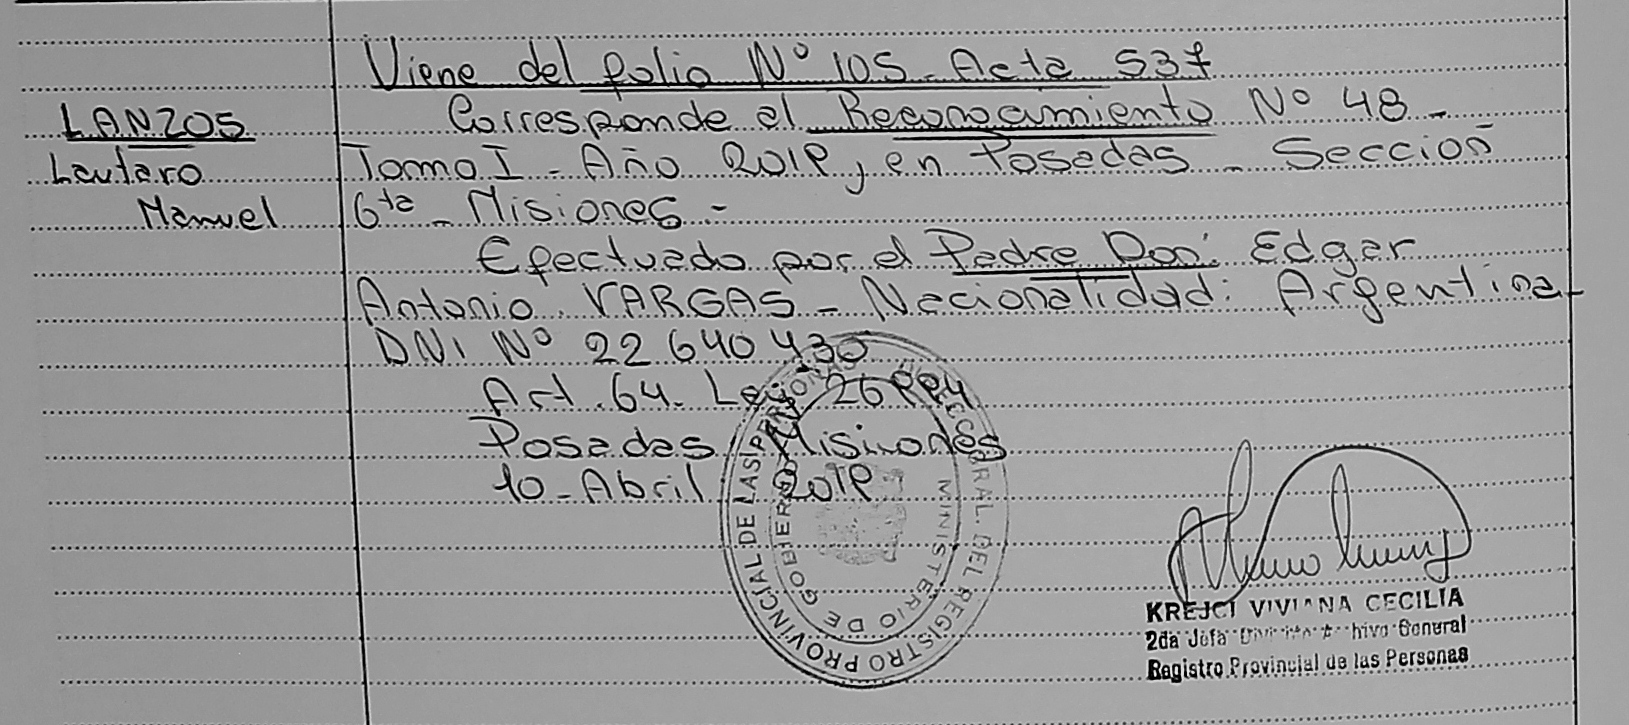 Viene del folio Nº 105 - Acta 537
LANZOS
Corresponde al Reconocimiento Nº 48 -
Lautaro
Tomo I - Año 2019, en Posadas - Sección
Manuel
6ta - Misiones -
Efectuado por el Padre Don: Edgar
Antonio VARGAS - Nacionalidad: Argentina -
DNI Nº 22640430
Art. 64. Ley 26994
Posadas, Misiones
10 - Abril 2019
GRAL. DEL REGISTRO PROVINCIAL DE LAS PERSONAS
MINISTERIO DE GOBIERNO
KREJCI VIVIANA CECILIA
2da Jefa División Archivo General
Registro Provincial de las Personas